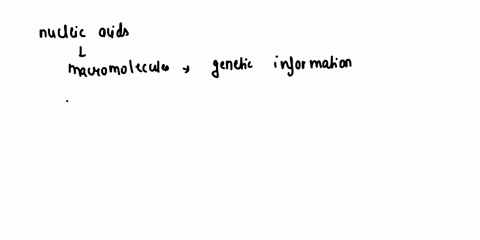 nucleic acids
↳
macromolecules → genetic information